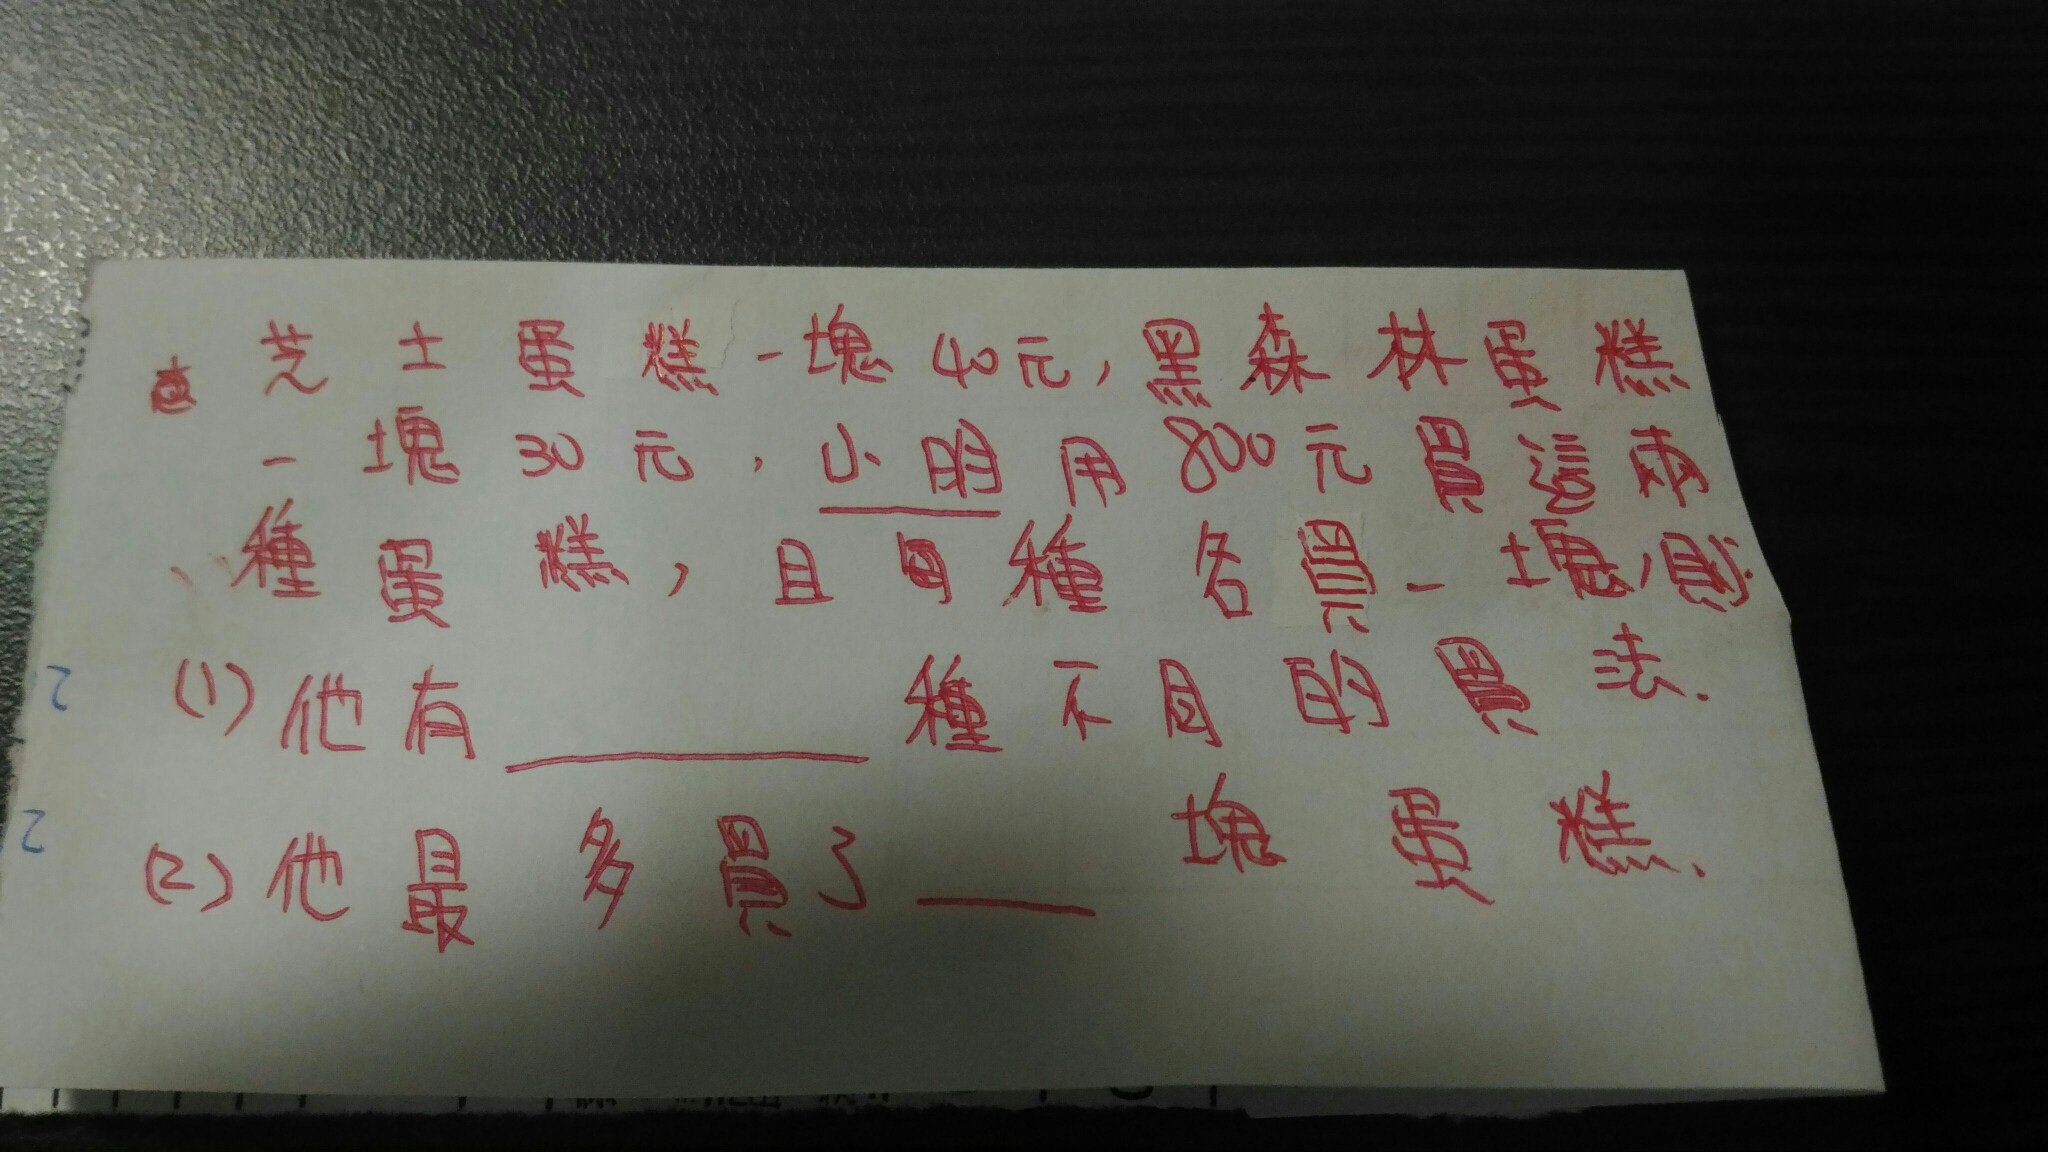 芝士蛋糕一塊40元,黑森林蛋糕
一塊30元,小明用800元買這兩
種蛋糕,且每種各買一塊,則
(1)他有______種不同的買法.
(2)他最多買了____塊蛋糕.